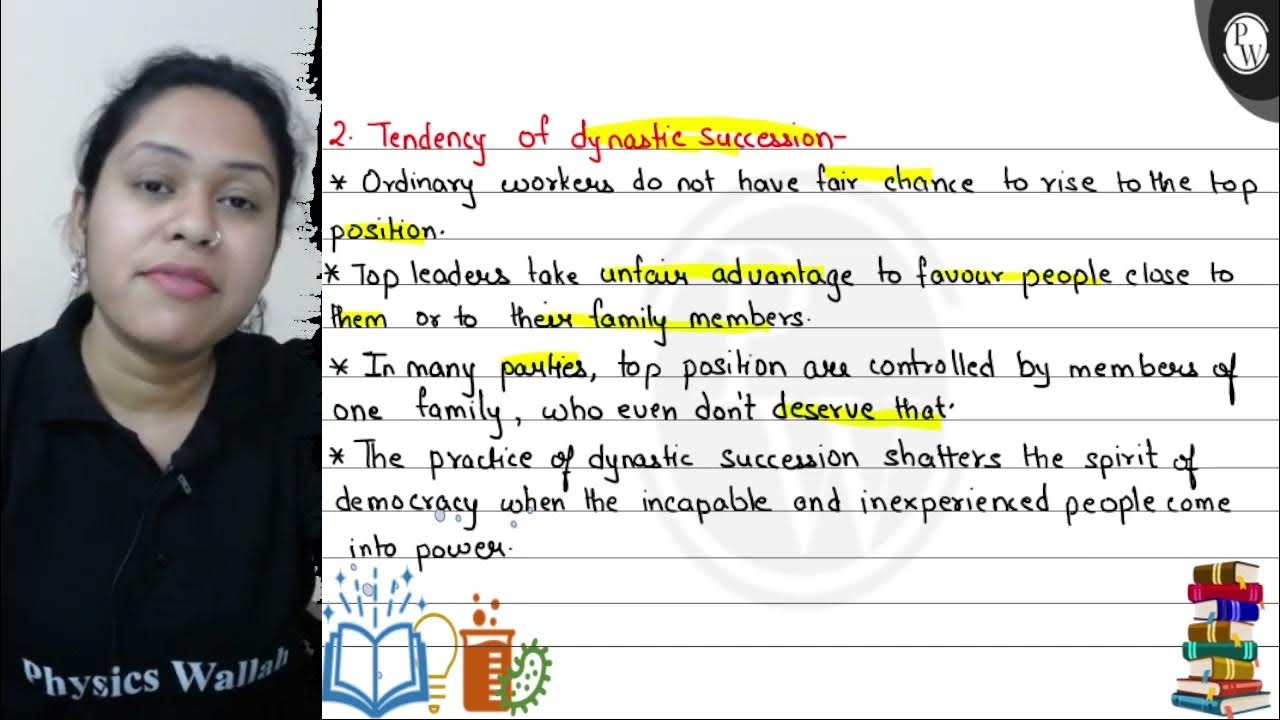 PW
2. Tendency of dynastic succession-
* Ordinary workers do not have fair chance to rise to the top
position.
* Top leaders take unfair advantage to favour people close to
them or to their family members.
* In many parties, top position are controlled by members of
one family, who even don't deserve that.
* The practice of dynastic succession shatters the spirit of
democracy when the incapable and inexperienced people come
into power.
Physics Wallah